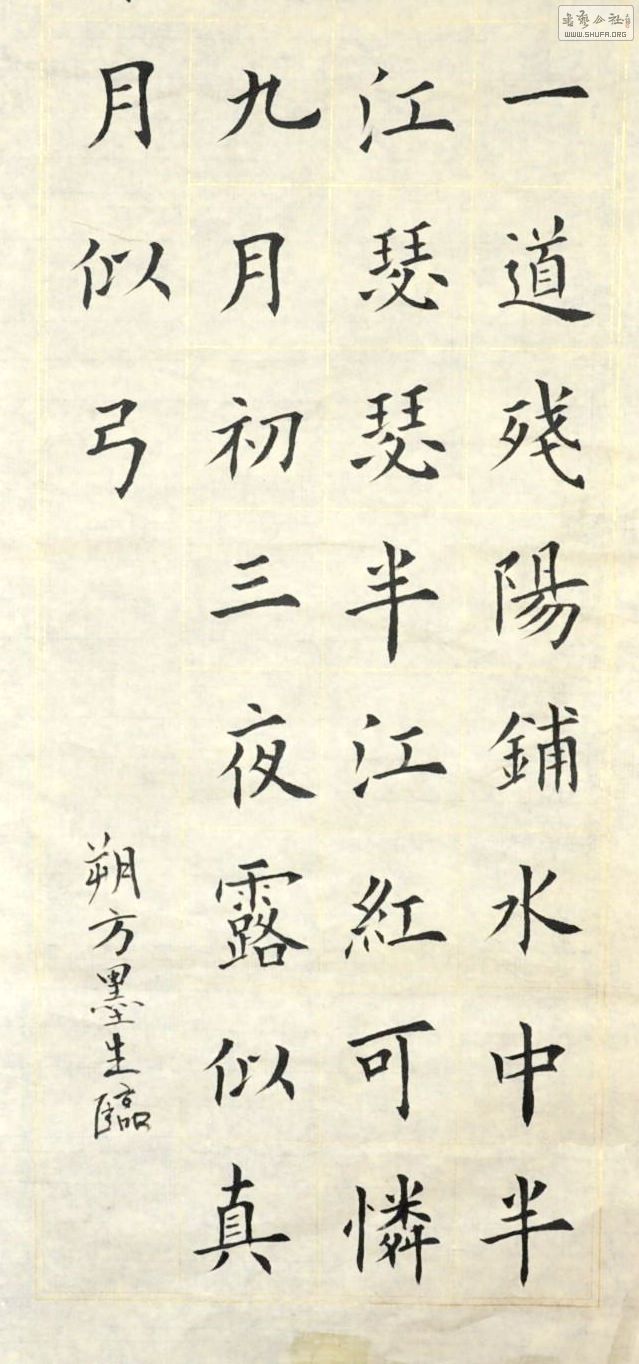 一道殘陽鋪水中半
江瑟瑟半江紅可憐
九月初三夜露似真
月似弓
朔方墨生臨
書藝公社
WWW.SHUFA.ORG